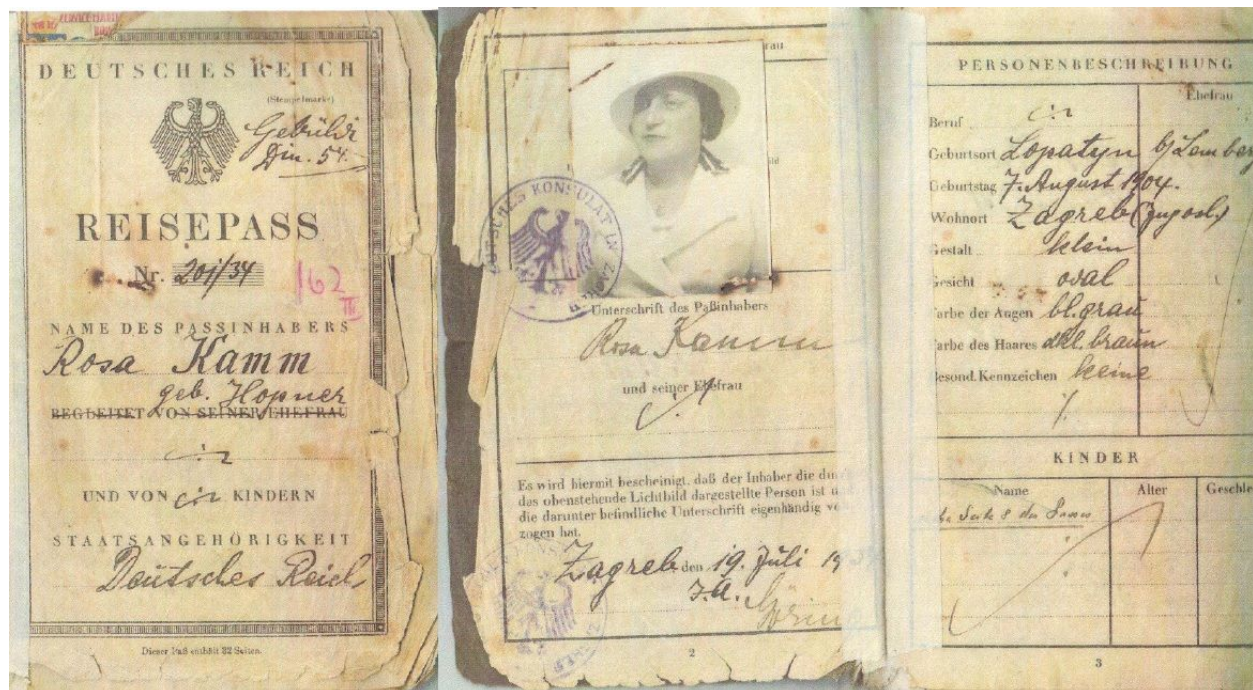 DEUTSCHES REICH
(Stempelmarke)
Gebühr
Din. 54.
REISEPASS
Nr. 201/34
162
III
NAME DES PASSINHABERS
Rosa Kamm
geb. Hopner
BEGLEITET VON SEINER EHEFRAU
UND VON KINDERN
STAATSANGEHÖRIGKEIT
Deutsches Reich
Dieser Paß enthält 32 Seiten.
DEUTSCHES KONSULAT IN
Unterschrift des Paßinhabers
Rosa Kamm
und seiner Ehefrau
Es wird hiermit bescheinigt, daß der Inhaber die
das obenstehende Lichtbild dargestellte Person ist
die darunter befindliche Unterschrift eigenhändig
zogen hat.
Zagreb den 19. Juli 19
J.A.
2
PERSONENBESCHREIBUNG
Ehefrau
Beruf
Geburtsort Lopatyn b/Lemberg
Geburtstag 7. August 1904.
Wohnort Zagreb (Jugosl.)
Gestalt klein
Gesicht oval
Farbe der Augen bl.grau
Farbe des Haares dkl. braun
Besond. Kennzeichen keine
KINDER
Name Alter Geschle
3